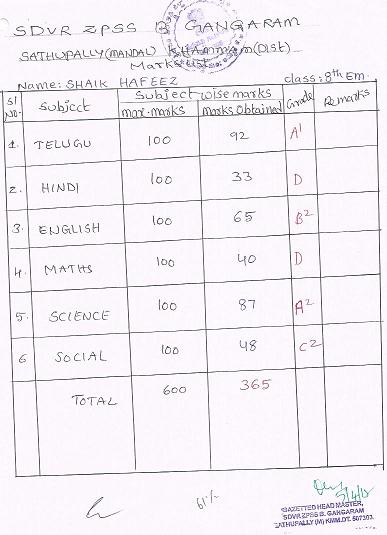 SDVR ZPSS B GANGARAM
SATHUPALLY(MANDAL) KHAMMAM(Dist)
Marks list
Name: SHAIK HAFEEZ class: 8th Em
Sl No. Subject Subject wise marks Grade Remarks
max. marks marks Obtained
1. TELUGU 100 92 A1
2. HINDI 100 33 D
3. ENGLISH 100 65 B2
4. MATHS 100 40 D
5. SCIENCE 100 87 A2
6 SOCIAL 100 48 C2
TOTAL 600 365
61%
GAZETTED HEAD MASTER,
SDVR ZPSS B. GANGARAM
SATHUPALLY (M) KMM.DT. 507303.